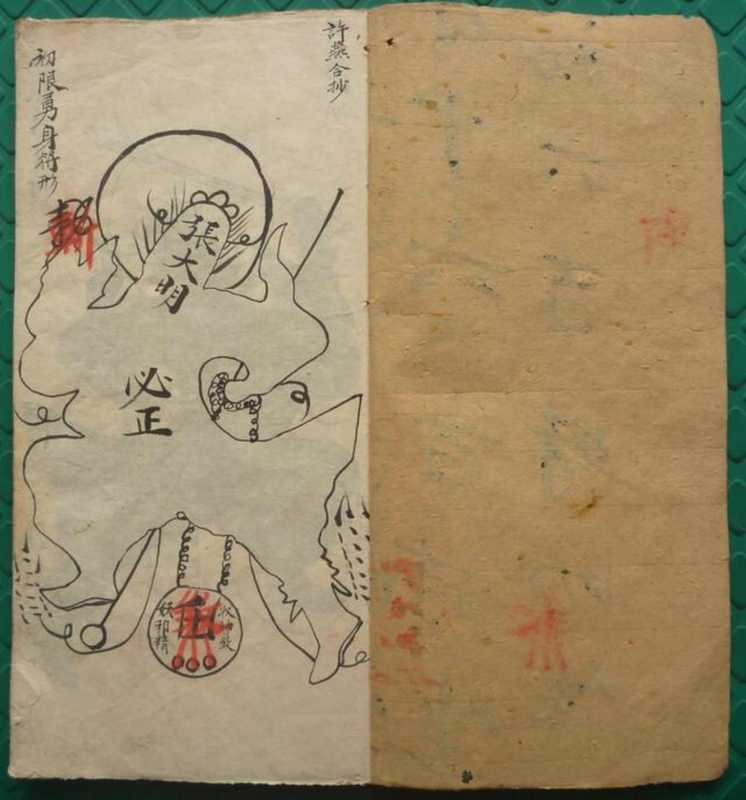 許燕合抄
初限勇身符形
張大明
必正
妖邪精